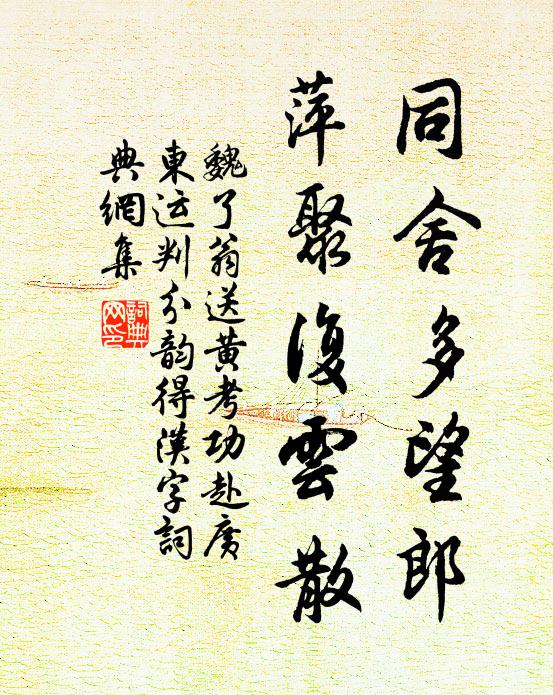 同舍多望郎
萍聚復雲散
魏了翁送黄考功赴廣
東运判分韵得漢字詞
典網集
詞典
网印